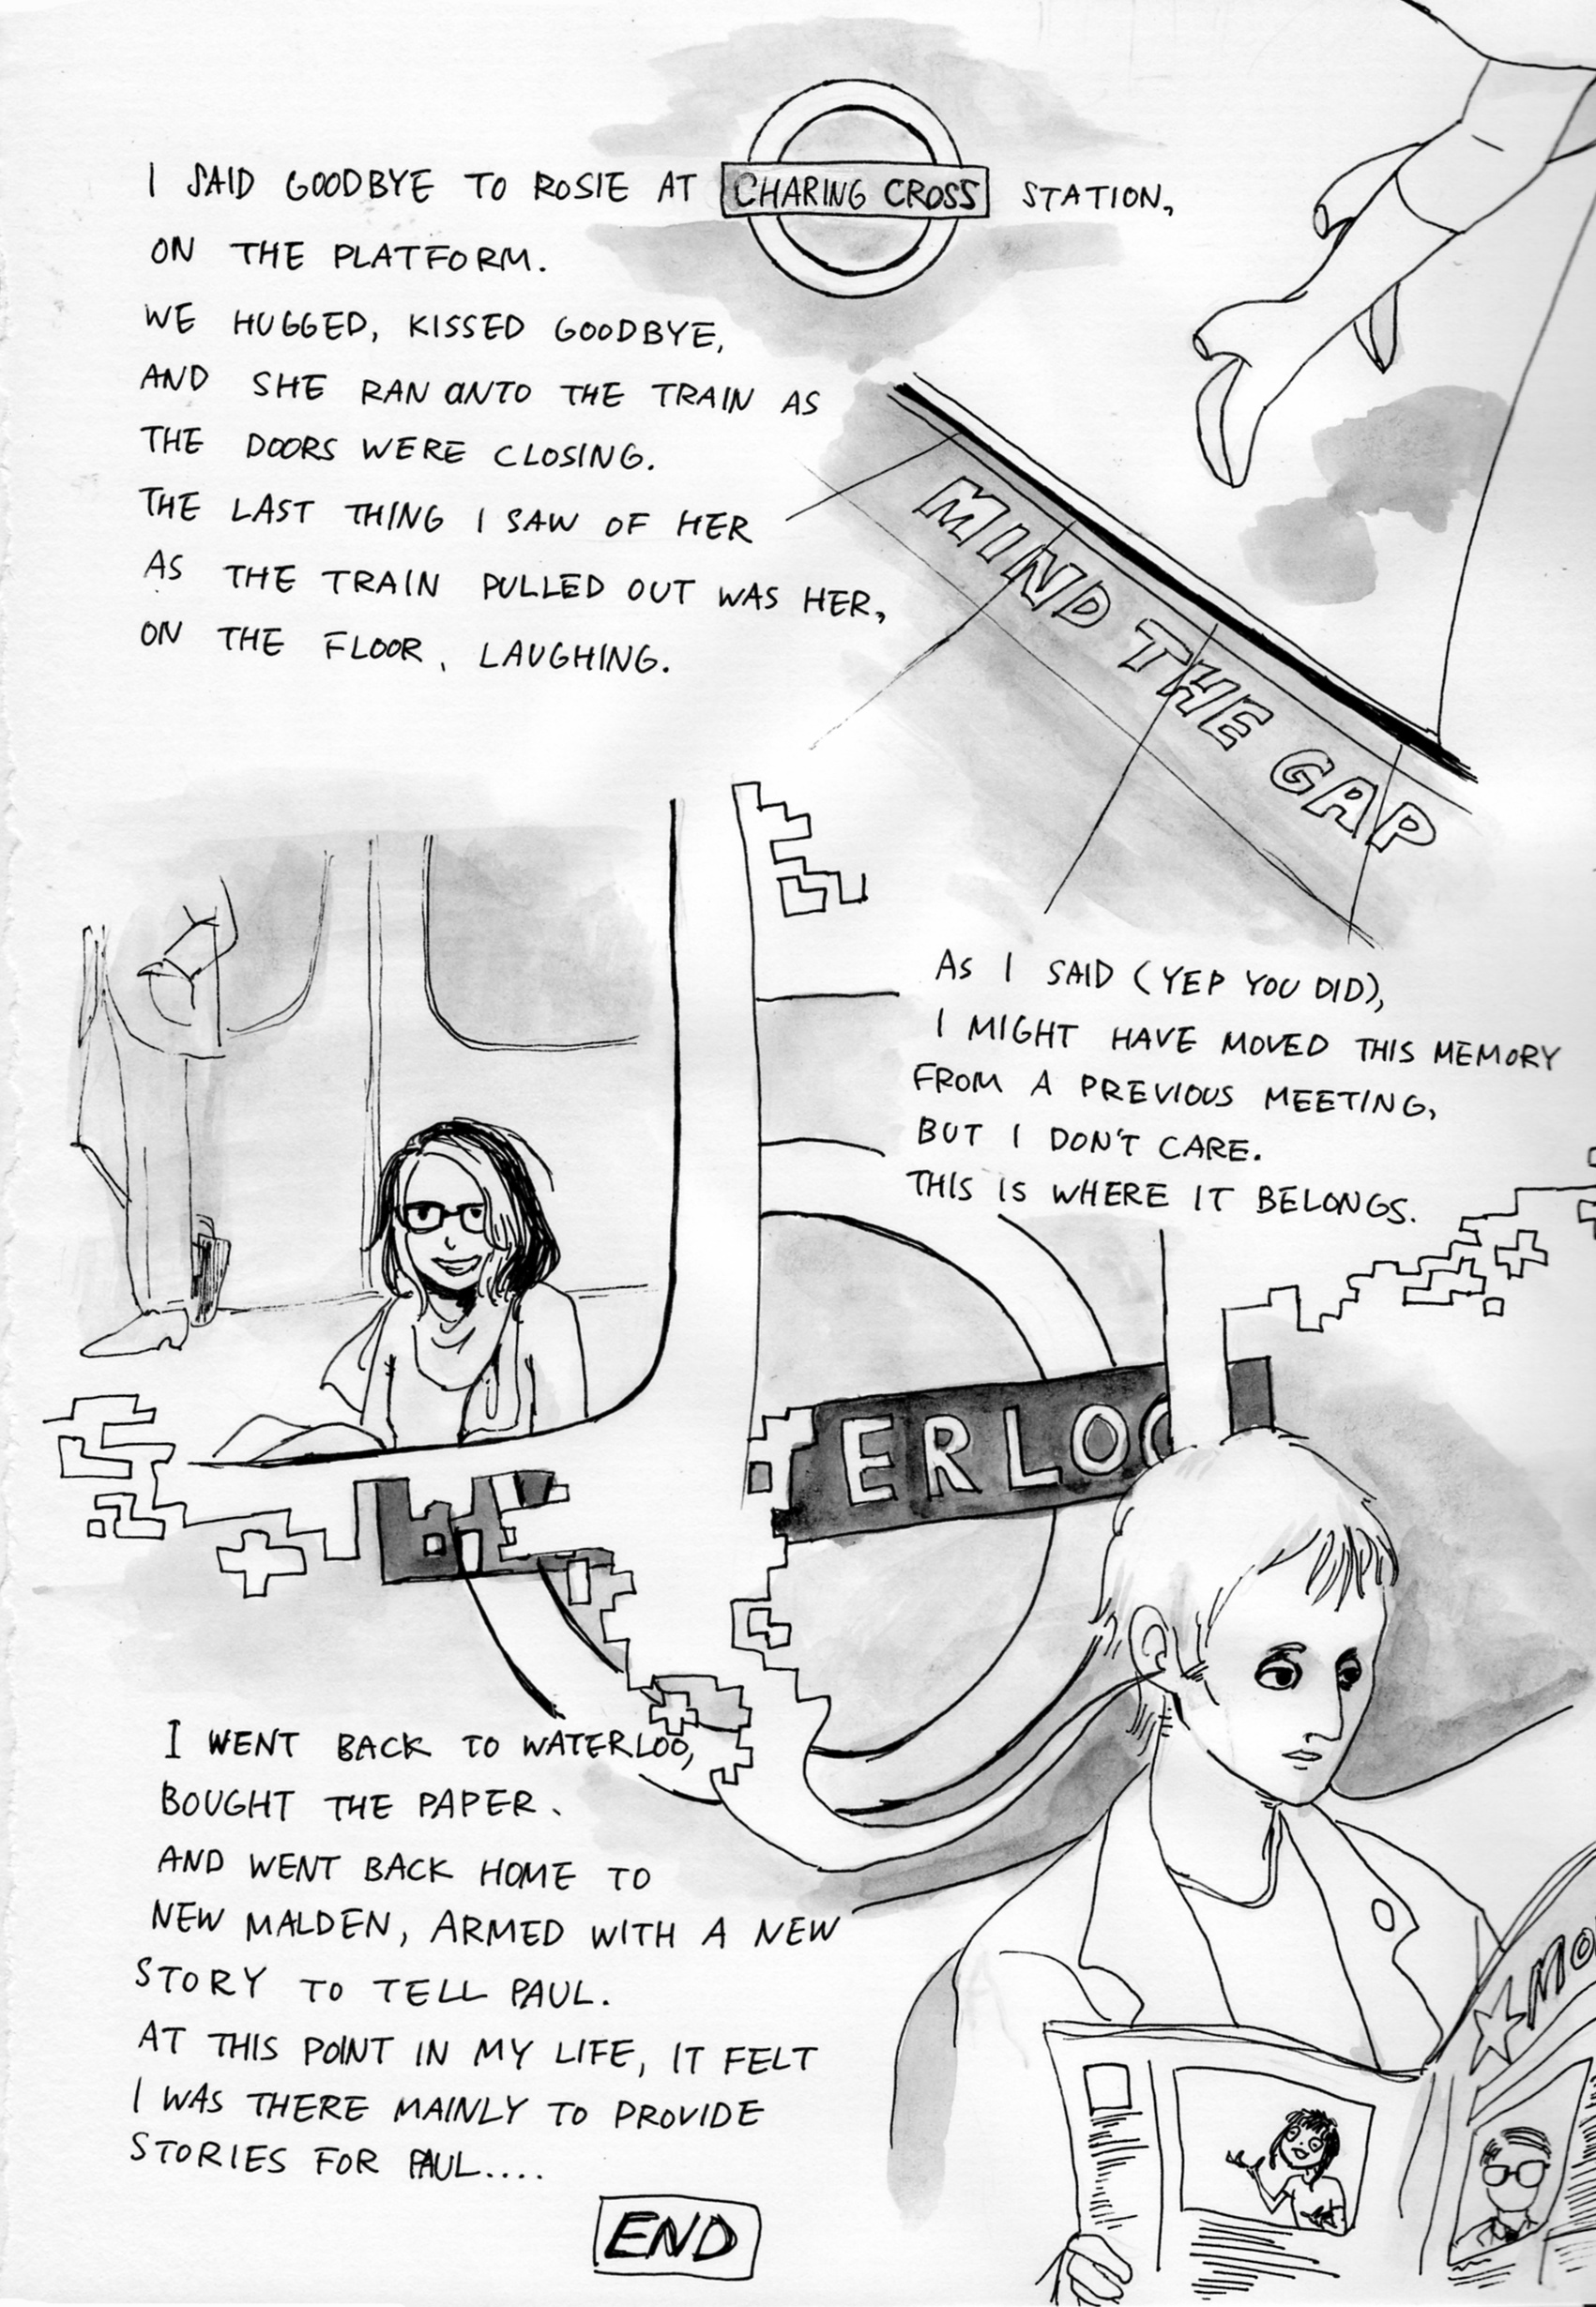 I SAID GOODBYE TO ROSIE AT CHARING CROSS STATION,
ON THE PLATFORM.
WE HUGGED, KISSED GOODBYE,
AND SHE RAN ONTO THE TRAIN AS
THE DOORS WERE CLOSING.
THE LAST THING I SAW OF HER
AS THE TRAIN PULLED OUT WAS HER,
ON THE FLOOR, LAUGHING.
MIND THE GAP
AS I SAID (YEP YOU DID),
I MIGHT HAVE MOVED THIS MEMORY
FROM A PREVIOUS MEETING,
BUT I DON'T CARE.
THIS IS WHERE IT BELONGS.
ERLOO
I WENT BACK TO WATERLOO,
BOUGHT THE PAPER.
AND WENT BACK HOME TO
NEW MALDEN, ARMED WITH A NEW
STORY TO TELL PAUL.
AT THIS POINT IN MY LIFE, IT FELT
I WAS THERE MAINLY TO PROVIDE
STORIES FOR PAUL....
MO
END